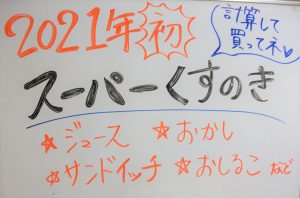 2021年 初
計算して
買ってネ♡
スーパーくすのき
☆ジュース ☆おかし
☆サンドイッチ ☆おしるこ など